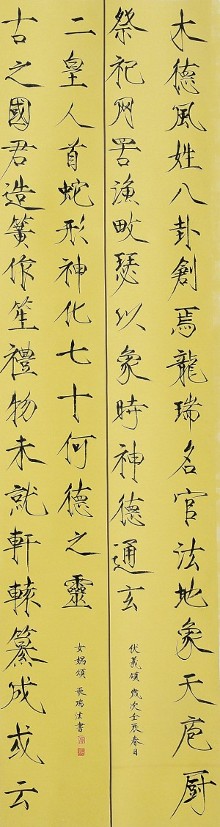 木德風姓八卦創焉龍瑞名官法地象天庖厨
祭祀网罟漁畋瑟以象時神德通玄
伏羲頌 歲次壬辰春日
古之國君造簧作笙禮物未就軒轅纂成或云
二皇人首蛇形神化七十何德之靈
女媧頌 張瑞法書